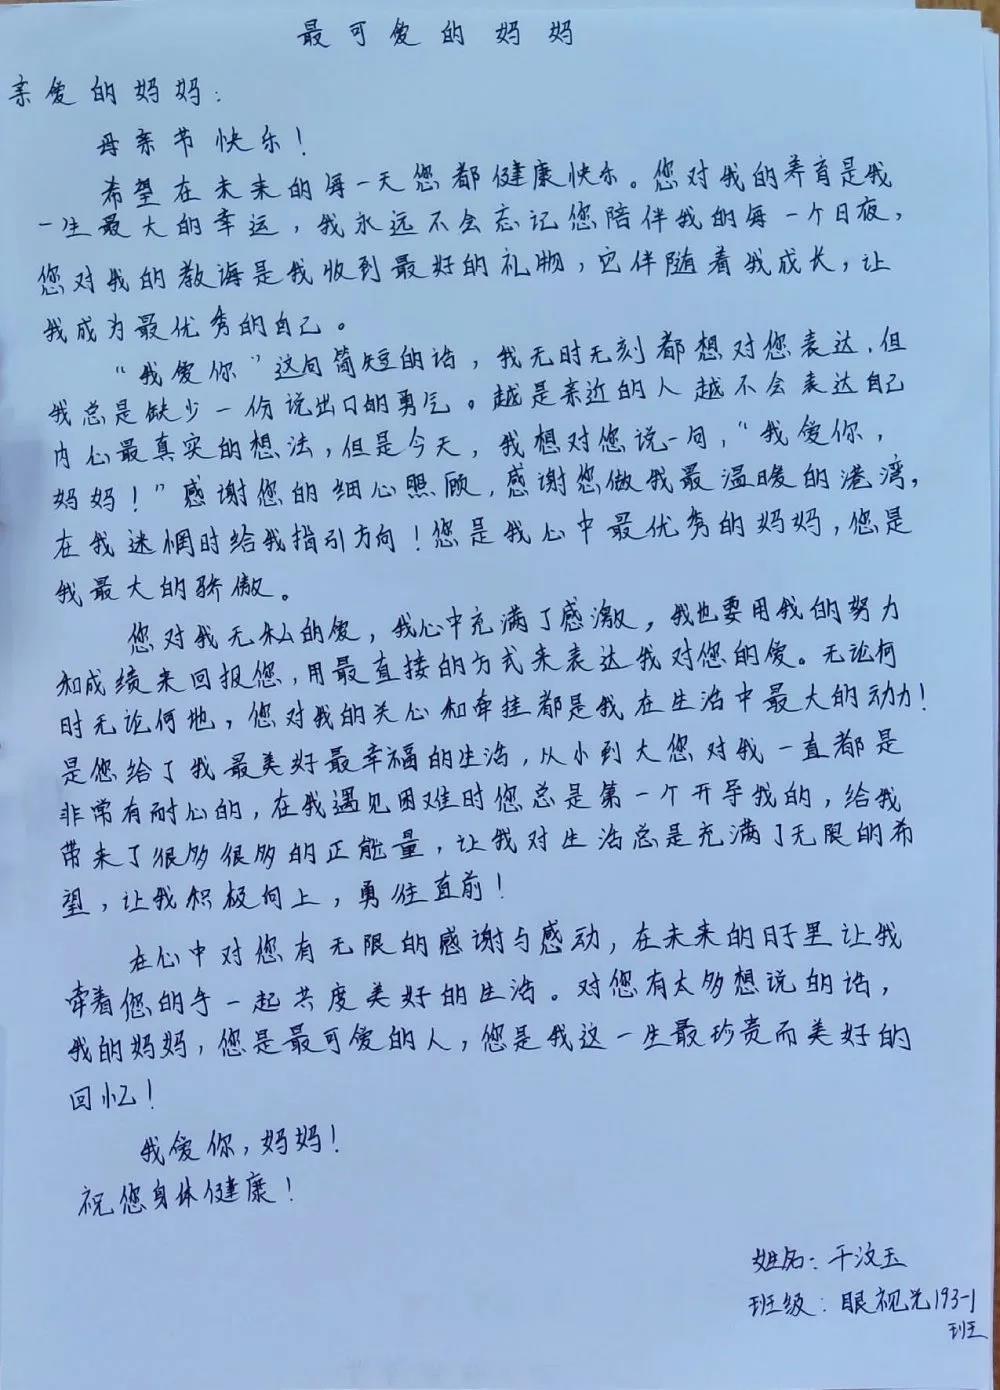 最可爱的妈妈
亲爱的妈妈：
母亲节快乐！
希望在未来的每一天您都健康快乐。您对我的养育是我
一生最大的幸运，我永远不会忘记您陪伴我的每一个日夜，
您对我的教诲是我收到最好的礼物，它伴随着我成长，让
我成为最优秀的自己。
“我爱你”这句简短的话，我无时无刻都想对您表达，但
我总是缺少一份说出口的勇气。越是亲近的人越不会表达自己
内心最真实的想法，但是今天，我想对您说一句，“我爱你，
妈妈！”感谢您的细心照顾，感谢您做我最温暖的港湾，
在我迷惘时给我指引方向！您是我心中最优秀的妈妈，您是
我最大的骄傲。
您对我无私的爱，我心中充满了感激，我也要用我的努力
和成绩来回报您，用最直接的方式来表达我对您的爱。无论何
时无论何地，您对我的关心和牵挂都是我在生活中最大的动力！
是您给了我最美好最幸福的生活，从小到大您对我一直都是
非常有耐心的，在我遇见困难时您总是第一个开导我的，给我
带来了很多很多的正能量，让我对生活总是充满了无限的希
望，让我积极向上，勇往直前！
在心中对您有无限的感谢与感动，在未来的日子里让我
牵着您的手一起共度美好的生活。对您有太多想说的话，
我的妈妈，您是最可爱的人，您是我这一生最珍贵而美好的
回忆！
我爱你，妈妈！
祝您身体健康！
姓名：干汶玉
班级：眼视光193-1
班